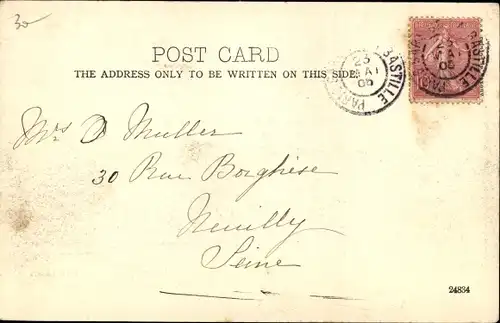 30
POST CARD
THE ADDRESS ONLY TO BE WRITTEN ON THIS SIDE.
BASTILLE
23
MAI
05
PARIS
BASTILLE
23
05
PARIS
Mrs D Muller
30 Rue Borghèse
Neuilly
Seine
24834